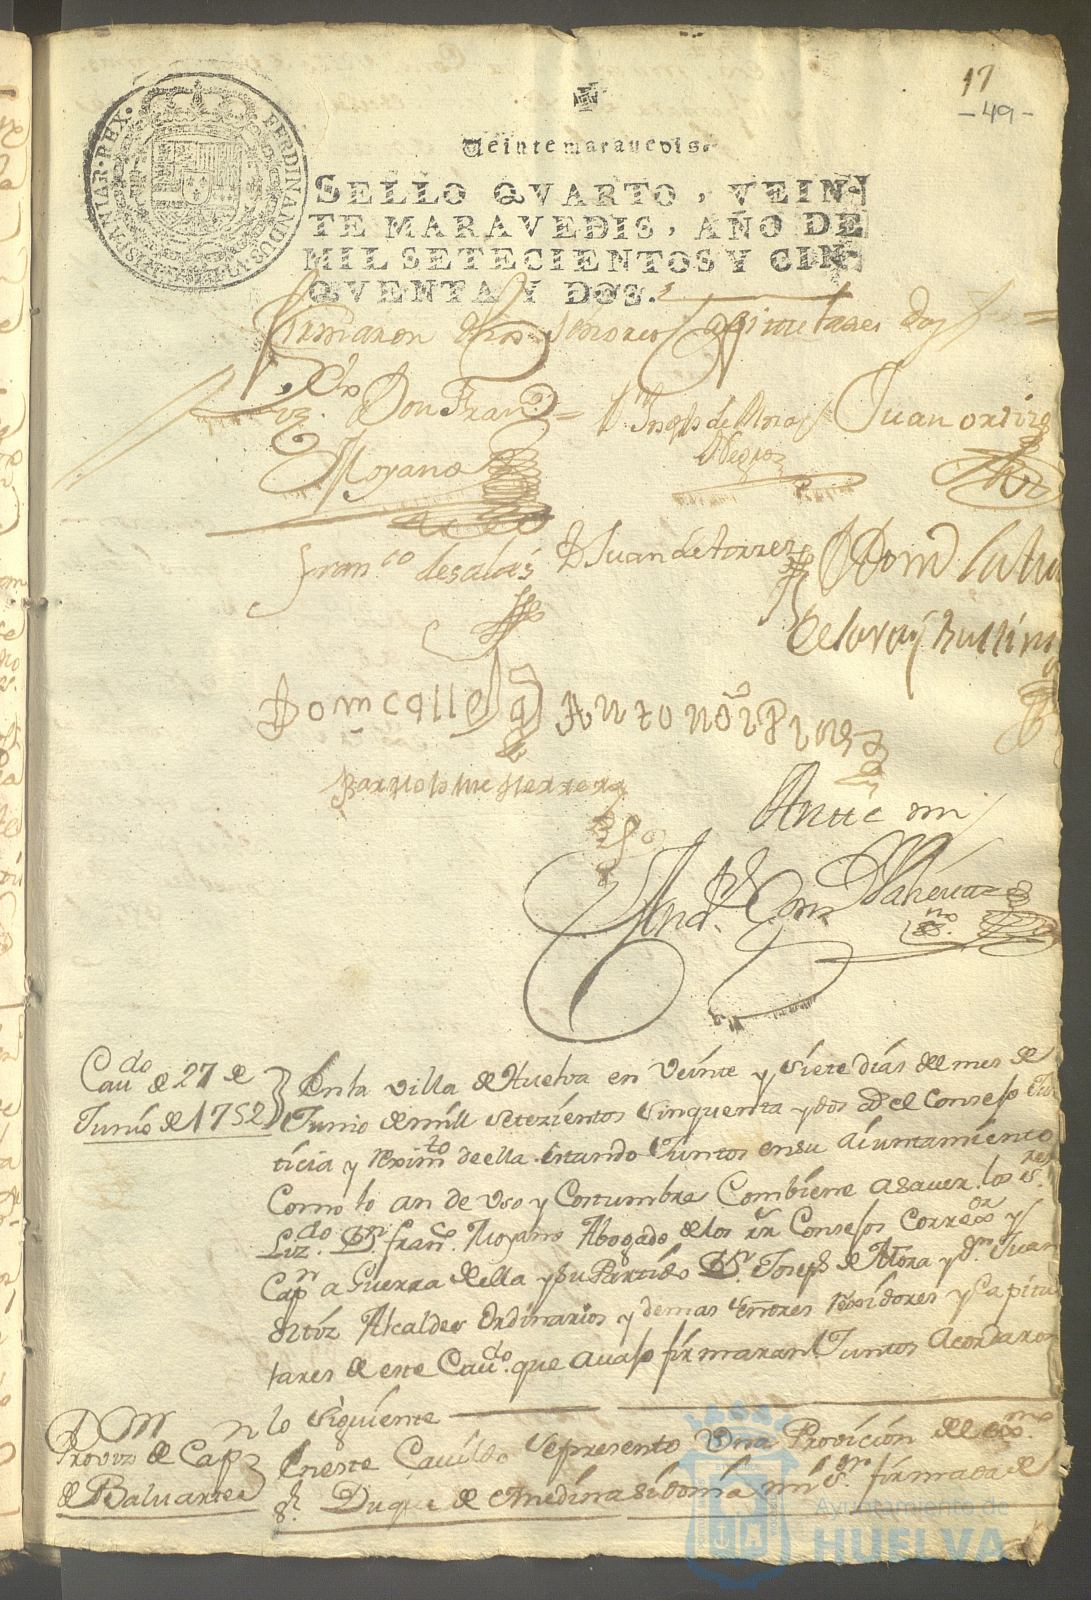 17
-49-
Veinte maravedis.
FERDINANDUS.VI.D.G.HISPANIAR.REX.
SELLO QVARTO, VEIN-
TE MARAVEDIS, AÑO DE
MIL SETECIENTOS Y CIN-
QVENTA Y DOS.
firmaron dhos señores Capitulares doy fee =
Lizdo Don Franco Joseph de Mora Juan ortiz
Moyano Negro
Franco de salas D Juan de torres Dom
Dom calle Antonio
Bartolome Herrera
Ante mi
Cavdo de 27 de
Junio de 1752
En la villa de Huelva en Veinte y siete días del mes de
Junio de mill setezientos Cinquenta y dos as el Consejo Jus
ticia y reximto de ella estando Juntos en su Aiuntamiento
Como lo an de Uso y Costumbre Combiene a saver los ss.res
Lizdo. Dn. Franco. Moyano Abogado de los rs Consejos Correor y
Capn a Guerra de ella y su Partido Dn. Joseph de Mora y Dn Juan
Ortiz Alcaldes Ordinarios y demas señores rexidores y Capitu
lares de este Cavdo. que avajo firmaran Juntos Acordaron
lo siguiente
Provon de Capn
de Baluarte
En este Cavildo se presento Una Provición del exmo.
sr. Duque de Medina sidonia mi sr. firmada de
Ayuntamiento de
HUELVA